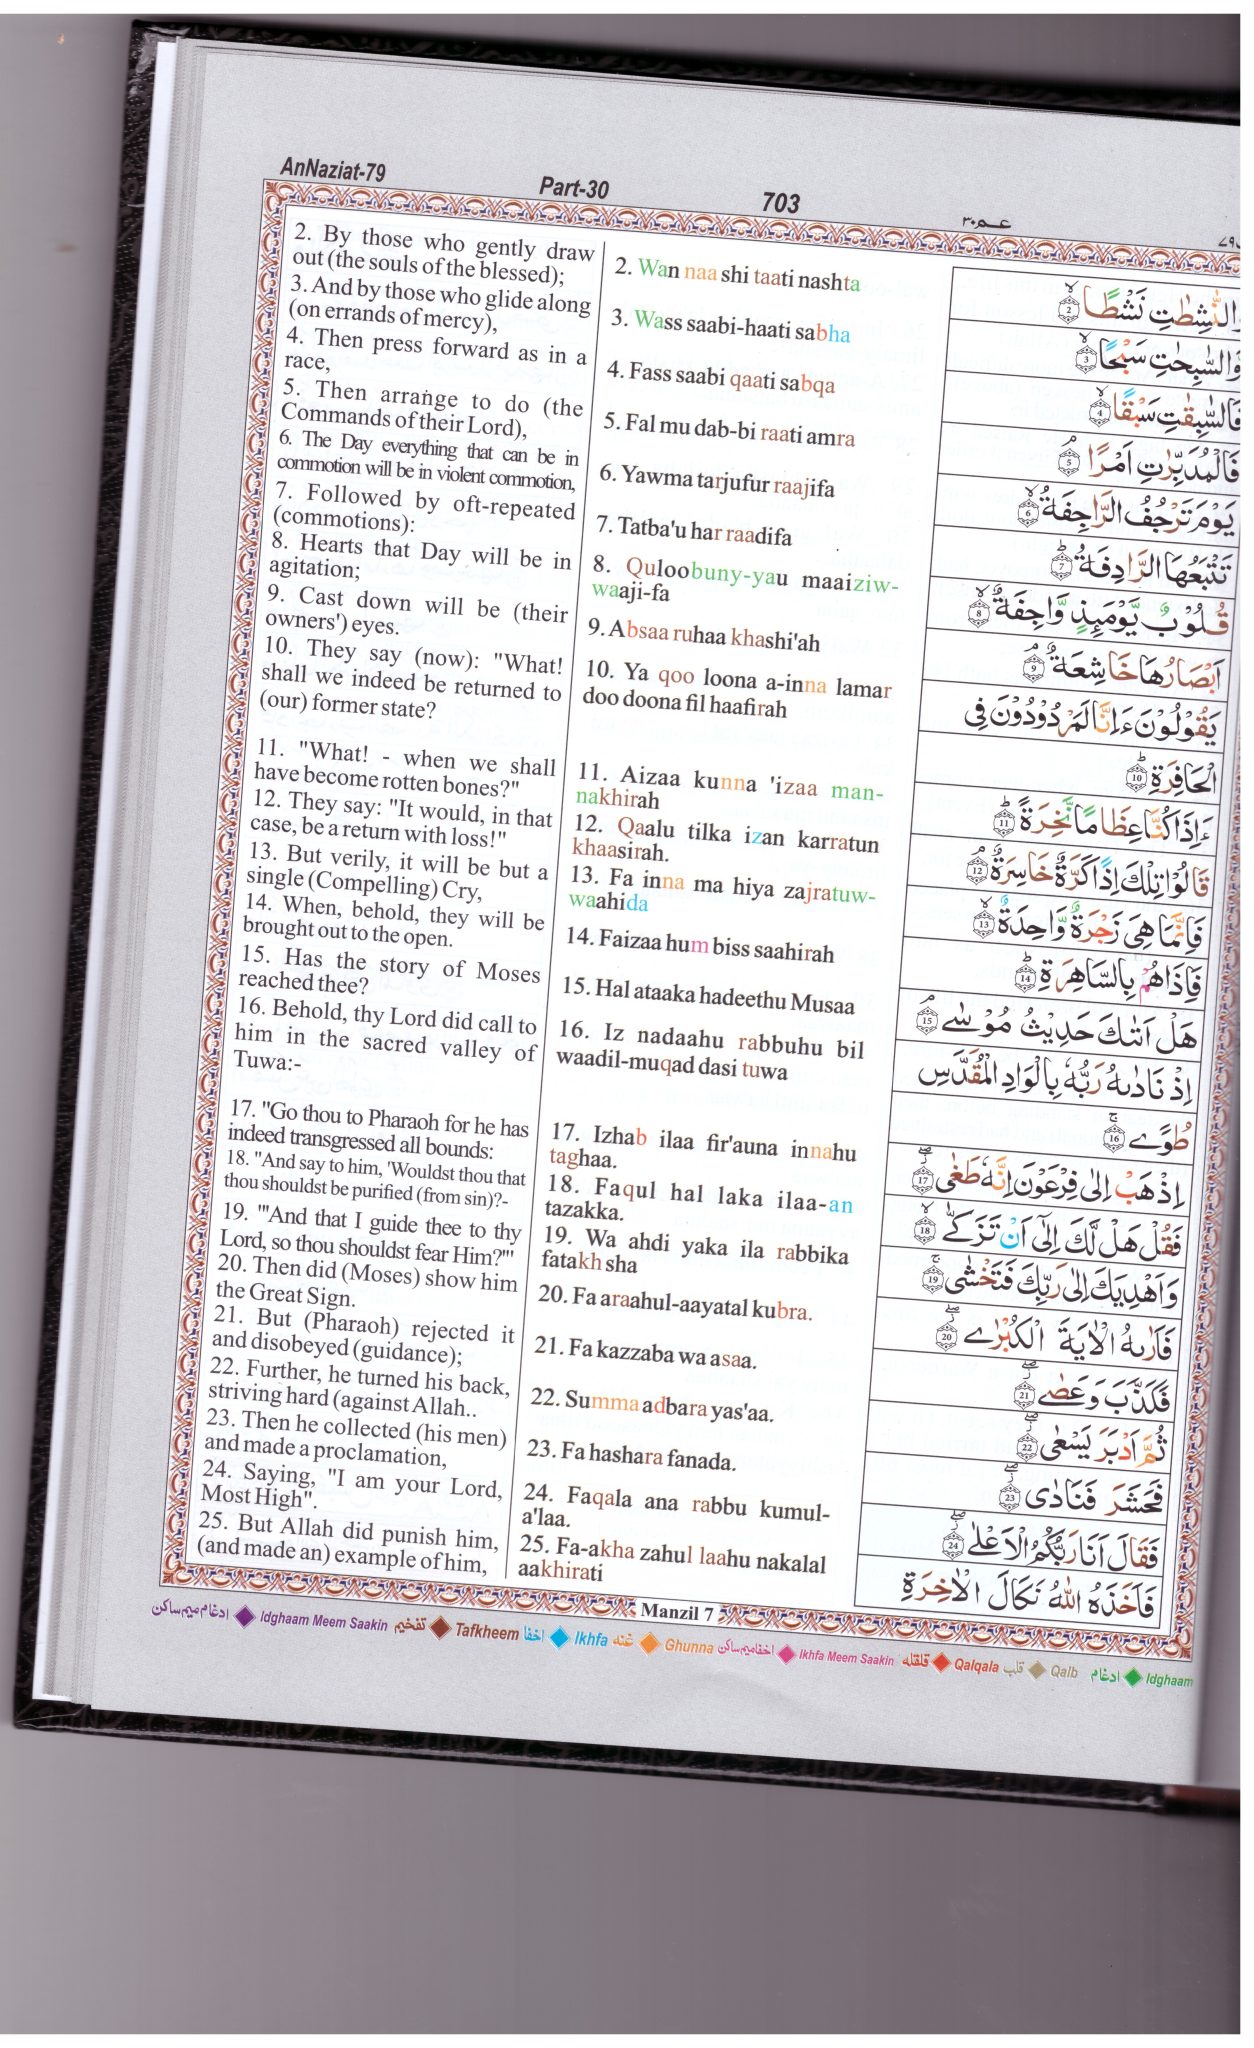 AnNaziat-79
Part-30
703
عـم٣٠
2. By those who gently draw
out (the souls of the blessed);
3. And by those who glide along
(on errands of mercy),
4. Then press forward as in a
race,
5. Then arrange to do (the
Commands of their Lord),
6. The Day everything that can be in
commotion will be in violent commotion,
7. Followed by oft-repeated
(commotions):
8. Hearts that Day will be in
agitation;
9. Cast down will be (their
owners') eyes.
10. They say (now): "What!
shall we indeed be returned to
(our) former state?
11. "What! - when we shall
have become rotten bones?"
12. They say: "It would, in that
case, be a return with loss!"
13. But verily, it will be but a
single (Compelling) Cry,
14. When, behold, they will be
brought out to the open.
15. Has the story of Moses
reached thee?
16. Behold, thy Lord did call to
him in the sacred valley of
Tuwa:-
17. "Go thou to Pharaoh for he has
indeed transgressed all bounds:
18. "And say to him, 'Wouldst thou that
thou shouldst be purified (from sin)?-
19. "'And that I guide thee to thy
Lord, so thou shouldst fear Him?'"
20. Then did (Moses) show him
the Great Sign.
21. But (Pharaoh) rejected it
and disobeyed (guidance);
22. Further, he turned his back,
striving hard (against Allah..
23. Then he collected (his men)
and made a proclamation,
24. Saying, "I am your Lord,
Most High".
25. But Allah did punish him,
(and made an) example of him,
2. Wan naa shi taati nashta
3. Wass saabi-haati sabha
4. Fass saabi qaati sabqa
5. Fal mu dab-bi raati amra
6. Yawma tarjufur raajifa
7. Tatba'u har raadifa
8. Quloobuny-yau maaiziw-
waaji-fa
9. Absaa ruhaa khashi'ah
10. Ya qoo loona a-inna lamar
doo doona fil haafirah
11. Aizaa kunna 'izaa man-
nakhirah
12. Qaalu tilka izan karratun
khaasirah.
13. Fa inna ma hiya zajratuw-
waahida
14. Faizaa hum biss saahirah
15. Hal ataaka hadeethu Musaa
16. Iz nadaahu rabbuhu bil
waadil-muqad dasi tuwa
17. Izhab ilaa fir'auna innahu
taghaa.
18. Faqul hal laka ilaa-an
tazakka.
19. Wa ahdi yaka ila rabbika
fatakh sha
20. Fa araahul-aayatal kubra.
21. Fa kazzaba wa asaa.
22. Summa adbara yas'aa.
23. Fa hashara fanada.
24. Faqala ana rabbu kumul-
a'laa.
25. Fa-akha zahul laahu nakalal
aakhirati
وَالنّٰشِطٰتِ نَشْطًا ۙ 2
وَّالسّٰبِحٰتِ سَبْحًا ۙ 3
فَالسّٰبِقٰتِ سَبْقًا ۙ 4
فَالْمُدَبِّرٰتِ اَمْرًا ۘ 5
يَوْمَ تَرْجُفُ الرَّاجِفَةُ ۙ 6
تَتْبَعُهَا الرَّادِفَةُ ؕ 7
قُلُوْبٌ يَّوْمَئِذٍ وَّاجِفَةٌ ۙ 8
اَبْصَارُهَا خَاشِعَةٌ ۘ 9
يَقُوْلُوْنَ ءَاِنَّا لَمَرْدُوْدُوْنَ فِى
الْحَافِرَةِ ؕ 10
ءَاِذَا كُنَّا عِظَامًا نَّخِرَةً ؕ 11
قَالُوْا تِلْكَ اِذًا كَرَّةٌ خَاسِرَةٌ ۘ 12
فَاِنَّمَا هِىَ زَجْرَةٌ وَّاحِدَةٌ ۙ 13
فَاِذَا هُمْ بِالسَّاهِرَةِ ؕ 14
هَلْ اَتٰىكَ حَدِيْثُ مُوْسٰى ۘ 15
اِذْ نَادٰىهُ رَبُّهٗ بِالْوَادِ الْمُقَدَّسِ
طُوًى ۚ 16
اِذْهَبْ اِلٰى فِرْعَوْنَ اِنَّهٗ طَغٰى 17
فَقُلْ هَلْ لَّكَ اِلٰٓى اَنْ تَزَكّٰى ۙ 18
وَاَهْدِيَكَ اِلٰى رَبِّكَ فَتَخْشٰى ۚ 19
فَاَرٰىهُ الْاٰيَةَ الْكُبْرٰى 20
فَكَذَّبَ وَعَصٰى 21
ثُمَّ اَدْبَرَ يَسْعٰى 22
فَحَشَرَ فَنَادٰى 23
فَقَالَ اَنَا رَبُّكُمُ الْاَعْلٰى 24
فَاَخَذَهُ اللّٰهُ نَكَالَ الْاٰخِرَةِ
Manzil 7
ادغام ميم ساكن Idghaam Meem Saakin تفخيم Tafkheem اخفا Ikhfa غنه Ghunna اخفا ميم ساكن Ikhfa Meem Saakin قلقله Qalqala قلب Qalb ادغام Idghaam